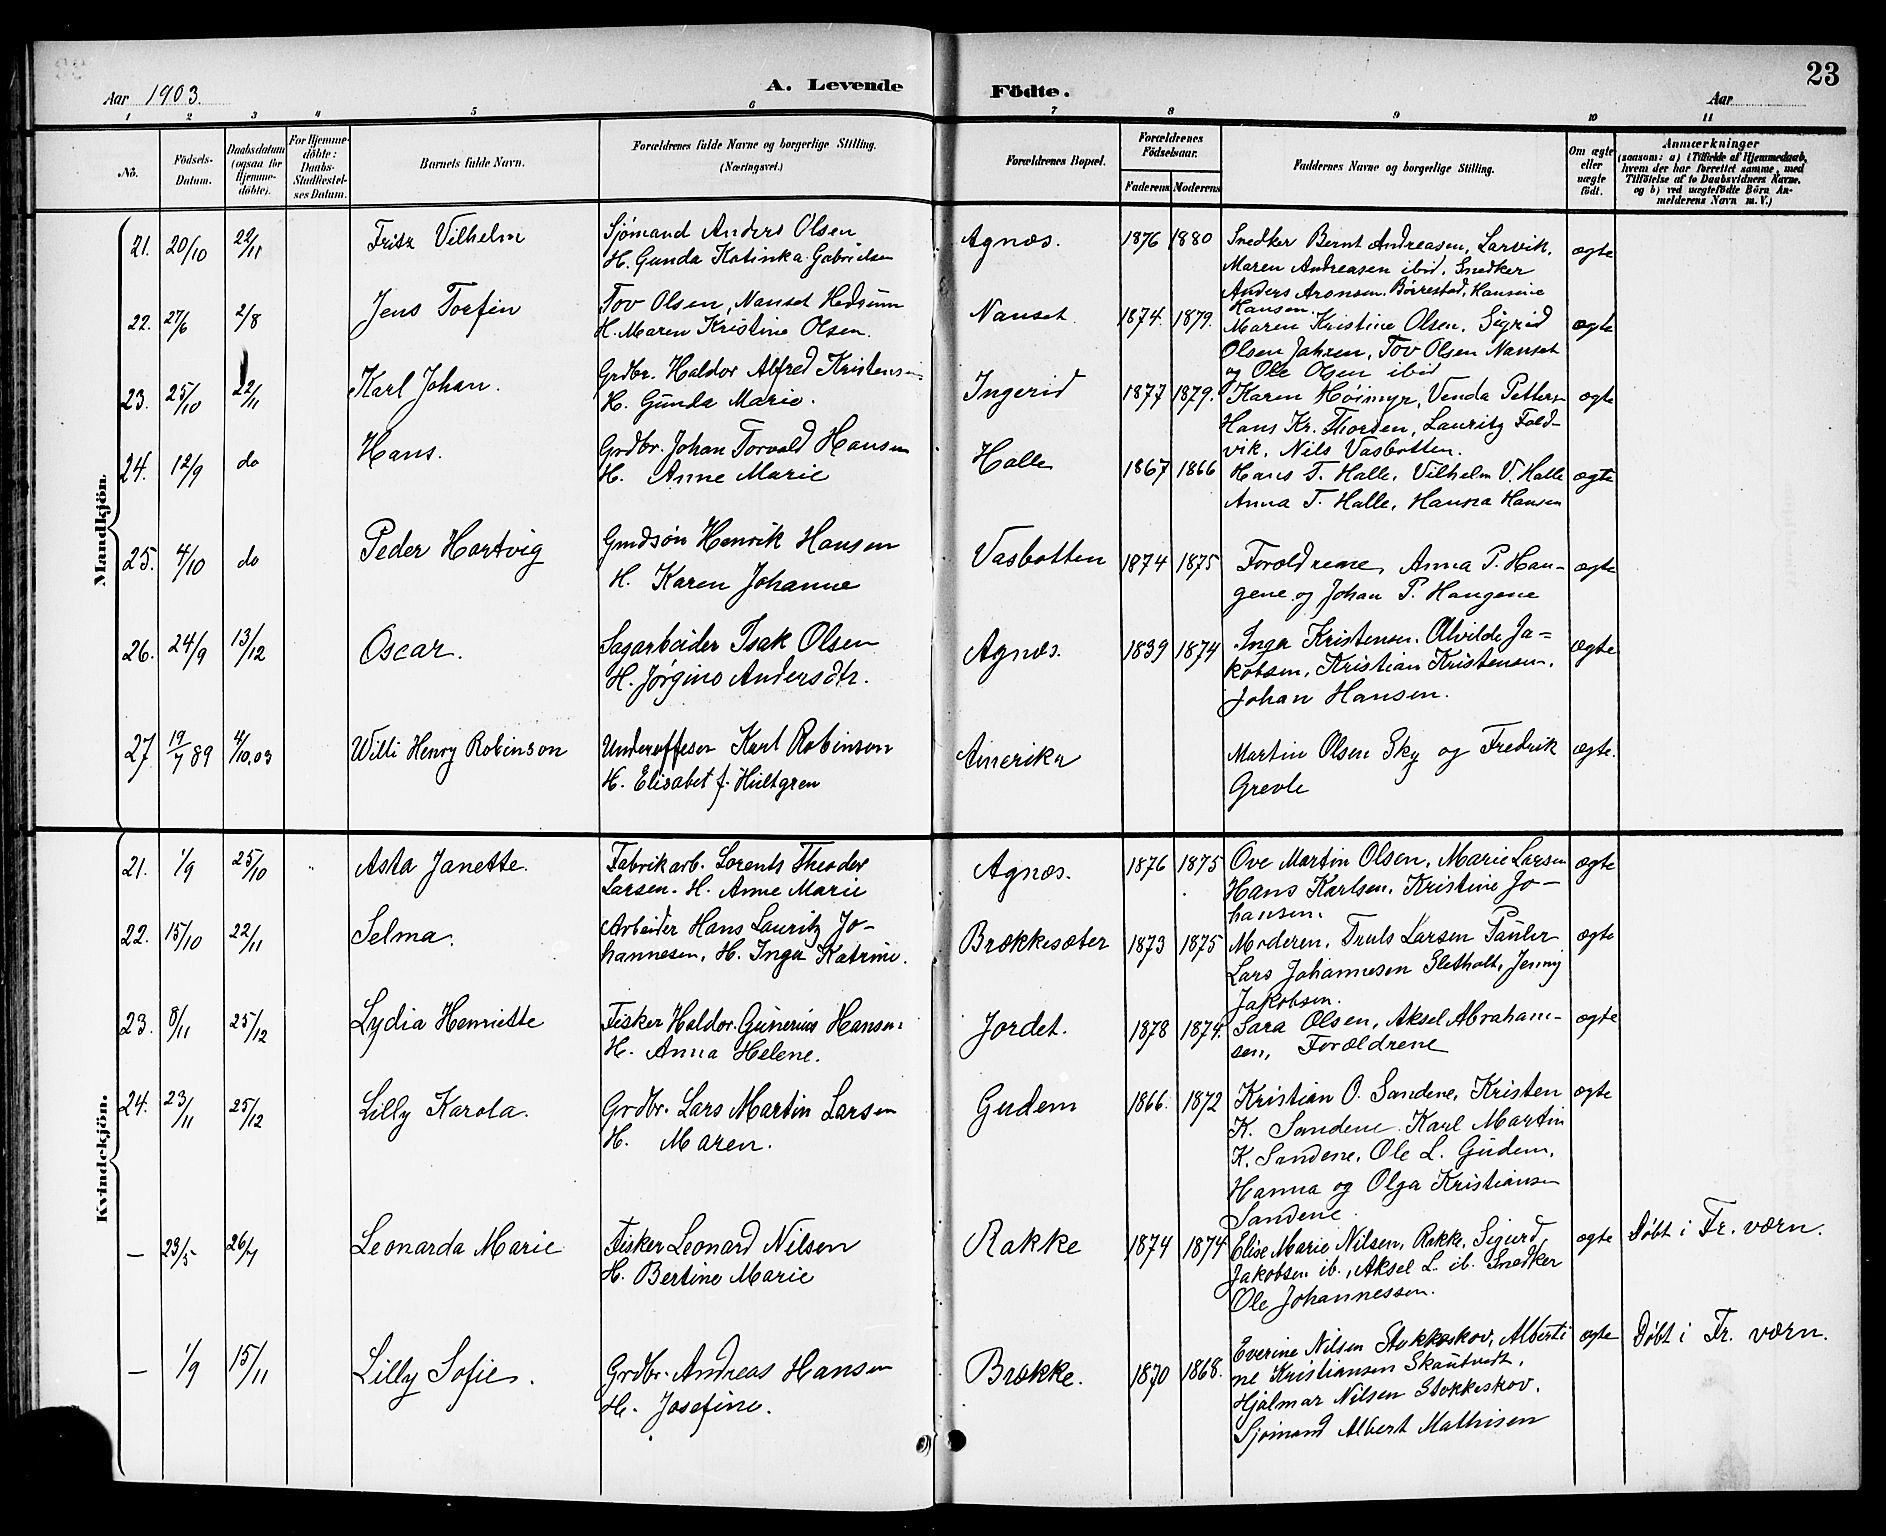 Aar 1903. A. Levende Födte. Aar 23
1 2 3 4 5 6 7 8 9 10 11
No. Födsels-Datum. Daabsdatum (ogsaa for Hjemmedöbte). For Hjemmedöbte: Daabs-Stadfæstelses Datum. Barnets fulde Navn. Forældrenes fulde Navne og borgerlige Stilling. (Næringsvei.) Forældrenes Bopæl. Forældrenes Födselsaar. Faderens Moderens Faddernes Navne og borgerlige Stilling. Om ægte eller uægte födt. Anmærkninger (saasom: a) i Tilfælde af Hjemmedaab, hvem der har forrettet samme, med Tilföielse af to Daabsvidners Navne, og b) ved uægtefödte Börn Anmelderens Navn m. V.)
Mandkjön.
21. 20/10 22/11 Fritz Vilhelm Sjømand Anders Olsen Agnæs. 1876 1880 Snedker Bernt Andreasen, Larvik, ægte
H. Gunda Katinka Gabrielsen Maren Andreasen ibid, Snedker
Anders Aronsen. Börrestad, Hansine
Hansen.
22. 27/6 2/8 Jens Torfin Tov Olsen, Nanset Hedrum Nanset. 1874. 1879. Maren Kristine Olsen, Sigrid ægte
H. Maren Kristine Olsen. Olsen Jahren, Tov Olsen Nanset
og Ole Olsen ibid
23. 25/10 22/11 Karl Johan. Grdbr. Haldor Alfred Kristensen Ingerid 1877 1879. Karen Høimyr, Venda Petters- ægte
H. Gunda Marie. Hans Kr. Thorsen, Lauritz Fold-
vik, Nils Vasbotten.
24. 12/9 do Hans. Grdbr. Johan Torvald Hansen Halle 1867 1866 Hans T. Halle, Vilhelm V. Halle ægte
H. Anne Marie Anna T. Halle, Hanna Hansen
25. 4/10 do Peder Hartvig Grndsøn Henrik Hansen Vasbotten 1874 1875 Forældrene, Anna P. Hau- ægte
H. Karen Johanne gene og Johan P. Haugene
26. 24/9 13/12 Oscar. Sagarbeider Isak Olsen Agnæs. 1839 1874 Inga Kristensen. Alvilde Ja- ægte
H. Jørgine Andersdtr. kobsen, Kristian Kristensen,
Johan Hansen.
27 19/7 89 4/10.03 Willi Henry Robinson Underofficer Karl Robinson Amerika Martin Olsen Sky og Fredrik ægte.
H. Elisabet f. Hultgren Grevle
Kvindekjön.
21. 1/9 25/10 Asta Janette. Fabrikarb. Lorents Theodor Agnæs. 1876 1875 Ove Martin Olsen, Marie Larsen ægte
Larsen. H. Anne Marie Hans Karlsen, Kristine Jo-
hansen.
22. 15/10 22/11 Selma. Arbeider Hans Lauritz Jo- Brækkesæter 1873 1875 Moderen, Truls Larsen Pauler ægte
hannesen, H. Inga Katrine. Lars Johannesen Sletholt, Jenny
Jakobsen.
23. 8/11 25/12 Lydia Henriette Fisker Haldor Gunerius Hansen. Jordet. 1878 1874. Sara Olsen, Aksel Abraham- ægte
H. Anna Helene. sen, Forældrene
24. 23/11 25/12 Lilly Karola. Grdbr. Lars Martin Larsen Gudem 1866. 1872 Kristian O. Sandene, Kristen ægte
H. Maren. K. Sandene. Karl Martin
K. Sandene, Ole L. Gudem,
Hanna og Olga Kristiansen
Sandene.
— 23/5 26/7 Leonarda Marie Fisker Leonard Nilsen Rakke 1874 1874 Elise Marie Nilsen, Rakke, Sigurd ægte Døbt i Fr. værn.
H. Bertine Marie Jakobsen ib., Aksel L. ib. Snedker
Ole Johannessen.
— 1/9 15/11 Lilly Sofie. Grdbr. Andreas Hansen Brække. 1870 1868. Everine Nilsen Stokkeskov, Alberti ægte Døbt i Fr. værn.
H. Josefine. ne Kristiansen Skautvedt,
Hjalmar Nilsen Stokkeskov.
Sjømand Albert Mathisen